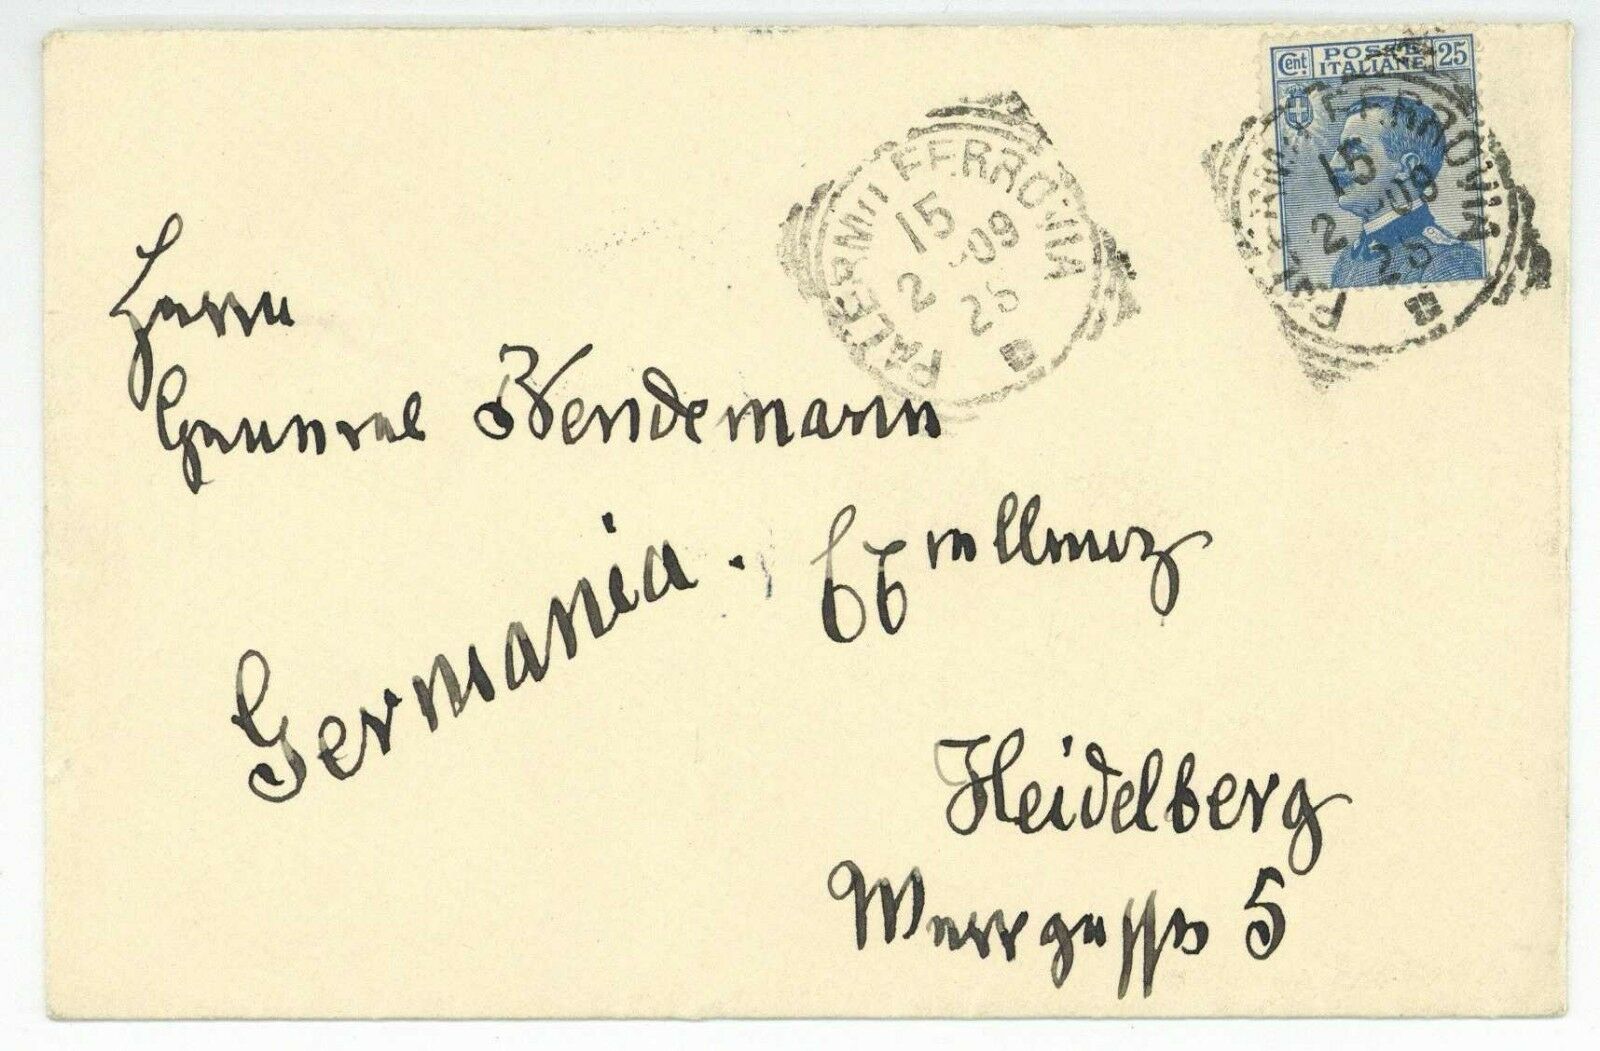 Cent. POSTE ITALIANE 25
PALERMO FERROVIA
15
2 09
25
PALERMO FERROVIA
15
2 09
25
Herrn
General Bendemann
Germania.
Exzellenz
Heidelberg
5